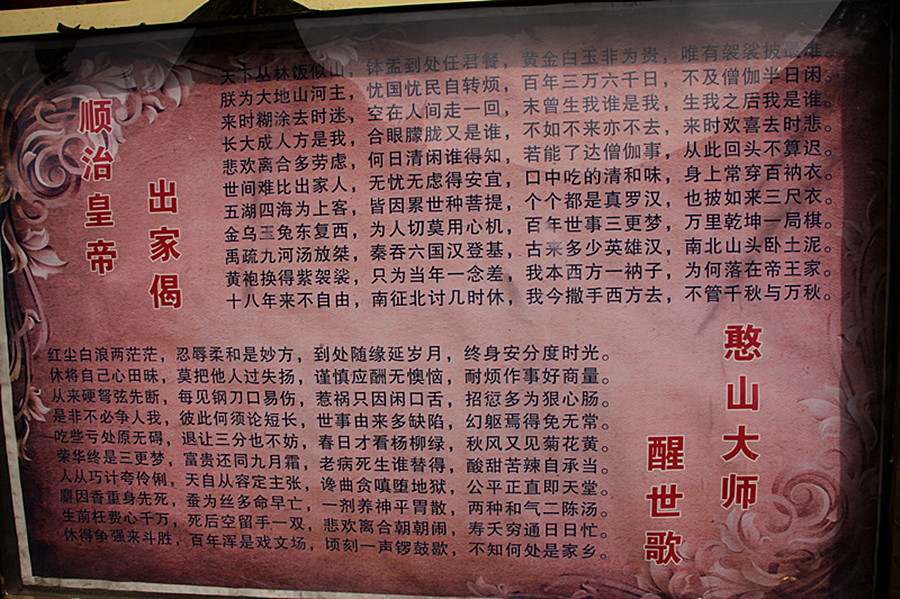 顺治皇帝
出家偈
天下丛林饭似山，钵盂到处任君餐，黄金白玉非为贵，唯有袈裟披最难。
朕为大地山河主，忧国忧民自转烦，百年三万六千日，不及僧伽半日闲。
来时糊涂去时迷，空在人间走一回，末曾生我谁是我，生我之后我是谁。
长大成人方是我，合眼朦胧又是谁，不如不来亦不去，来时欢喜去时悲。
悲欢离合多劳虑，何日清闲谁得知，若能了达僧伽事，从此回头不算迟。
世间难比出家人，无忧无虑得安宜，口中吃的清和味，身上常穿百衲衣。
五湖四海为上客，皆因累世种菩提，个个都是真罗汉，也披如来三尺衣。
金乌玉兔东复西，为人切莫用心机，百年世事三更梦，万里乾坤一局棋。
禹疏九河汤放桀，秦吞六国汉登基，古来多少英雄汉，南北山头卧土泥。
黄袍换得紫袈裟，只为当年一念差，我本西方一衲子，为何落在帝王家。
十八年来不自由，南征北讨几时休，我今撒手西方去，不管千秋与万秋。
憨山大师
醒世歌
红尘白浪两茫茫，忍辱柔和是妙方，到处随缘延岁月，终身安分度时光。
休将自己心田昧，莫把他人过失扬，谨慎应酬无懊恼，耐烦作事好商量。
从来硬弩弦先断，每见钢刀口易伤，惹祸只因闲口舌，招愆多为狠心肠。
是非不必争人我，彼此何须论短长，世事由来多缺陷，幻躯焉得免无常。
吃些亏处原无碍，退让三分也不妨，春日才看杨柳绿，秋风又见菊花黄。
荣华终是三更梦，富贵还同九月霜，老病死生谁替得，酸甜苦辣自承当。
人从巧计夸伶俐，天自从容定主张，谗曲贪嗔堕地狱，公平正直即天堂。
麝因香重身先死，蚕为丝多命早亡，一剂养神平胃散，两种和气二陈汤。
生前枉费心千万，死后空留手一双，悲欢离合朝朝闹，寿夭穷通日日忙。
休得争强来斗胜，百年浑是戏文场，顷刻一声锣鼓歇，不知何处是家乡。